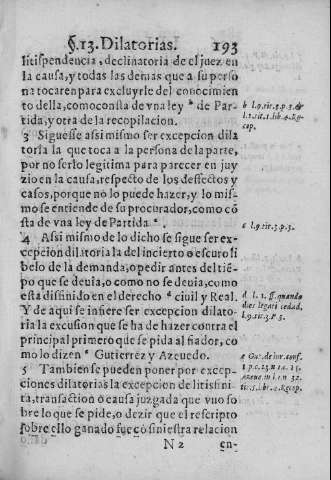 §.13. Dilatorias. 193
litispendencia, declinatoria de el juez en
la causa, y todas las demas que a su perso
na tocaren para excluyrle del conocimien
to della, como consta de vna ley ᵇ de Par-
tida, y otra de la recopilacion.
b l.9. tit.3. p.3. &
l.1. tit.1. lib.4. Re
cop.
3 Siguesse assi mismo ser excepcion dila
toria la que toca a la persona de la parte,
por no ser lo legitima para parecer en juy
zio en la causa, respecto de los deffectos y
casos, porque no lo puede hazer, y lo mis-
mo se entiende de su procurador, como cõ
sta de vna ley de Partida ᶜ.
c l.9. tit.3. p.3.
4 Assi mismo de lo dicho se sigue ser ex-
cepcion dilatoria la del incierto o escuro li
belo de la demanda, o pedir antes del tiẽ-
po que se deuia, o como no se deuia, como
esta distinido en el derecho ᵈ ciuil y Real.
Y de aqui se infiere ser excepcion dilato-
ria la excusion que se ha de hazer contra el
principal primero que se pida al fiador, co
mo lo dizen ᵉ Gutierrez y Azeuedo.
d l. 1. ff. quando
dies legati cedad.
l.9. tit.3. P.3.
e Gut. de iur. conf.
1 p. c. 23. n 1 c. 15.
Azeue. in l. en 32.
tit. 5. lib. 4. Recop.
5 Tambien se pueden poner por excep-
ciones dilatorias la excepcion de litisfini-
ta, transaction o causa juzgada que vuo so
bre lo que se pide, o dezir que el rescripto
sobre ello ganado fue cõ siniestra relacion
N 2 en-